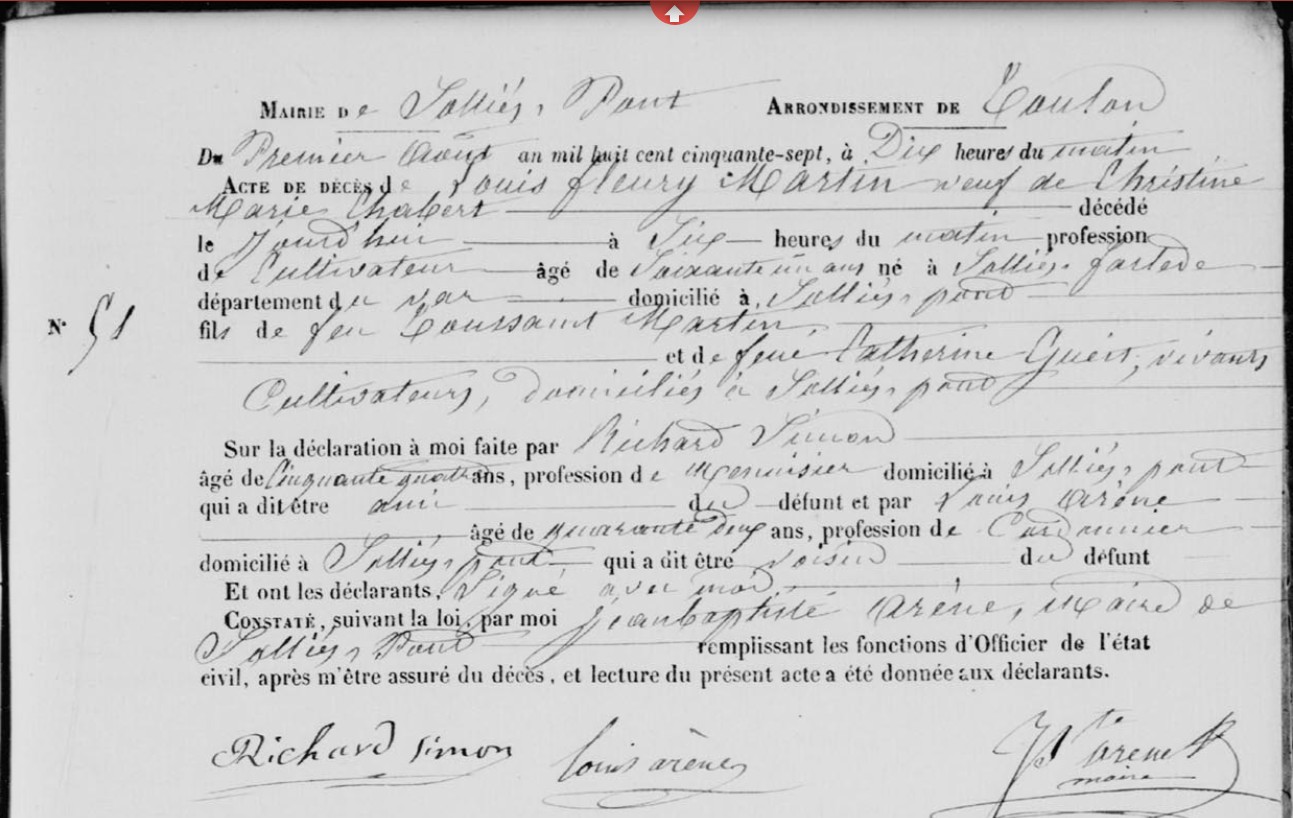 Mairie de Solliès, Pont Arrondissement de Toulon
Du Premier Août an mil huit cent cinquante-sept, à Dix heures du matin
Acte de décès de Louis fleury Martin veuf de Christine
Marie Chabert décédé
le Jourd'hui à Six heures du matin profession
de Cultivateur âgé de Soixante un ans né à Solliès, farlede
département du var domicilié à Solliès, pont
N° 51 fils de feu Toussaint Martin,
et de feue Catherine vivants
Cultivateurs, domiciliés à Solliès, pont
Sur la déclaration à moi faite par Richard Simon
âgé de Cinquante quatre ans, profession de Menuisier domicilié à Solliès, pont
qui a dit être ami du défunt et par Louis Arène
âgé de quarante deux ans, profession de Cordonnier
domicilié à Solliès, pont qui a dit être voisin du défunt
Et ont les déclarants, Signé avec moi
Constaté, suivant la loi, par moi jeanbaptiste Arène, Maire de
Solliès, Pont remplissant les fonctions d'Officier de l'état
civil, après m'être assuré du décès, et lecture du présent acte a été donnée aux déclarants.
Richard Simon louis arène Jb te arene
maire